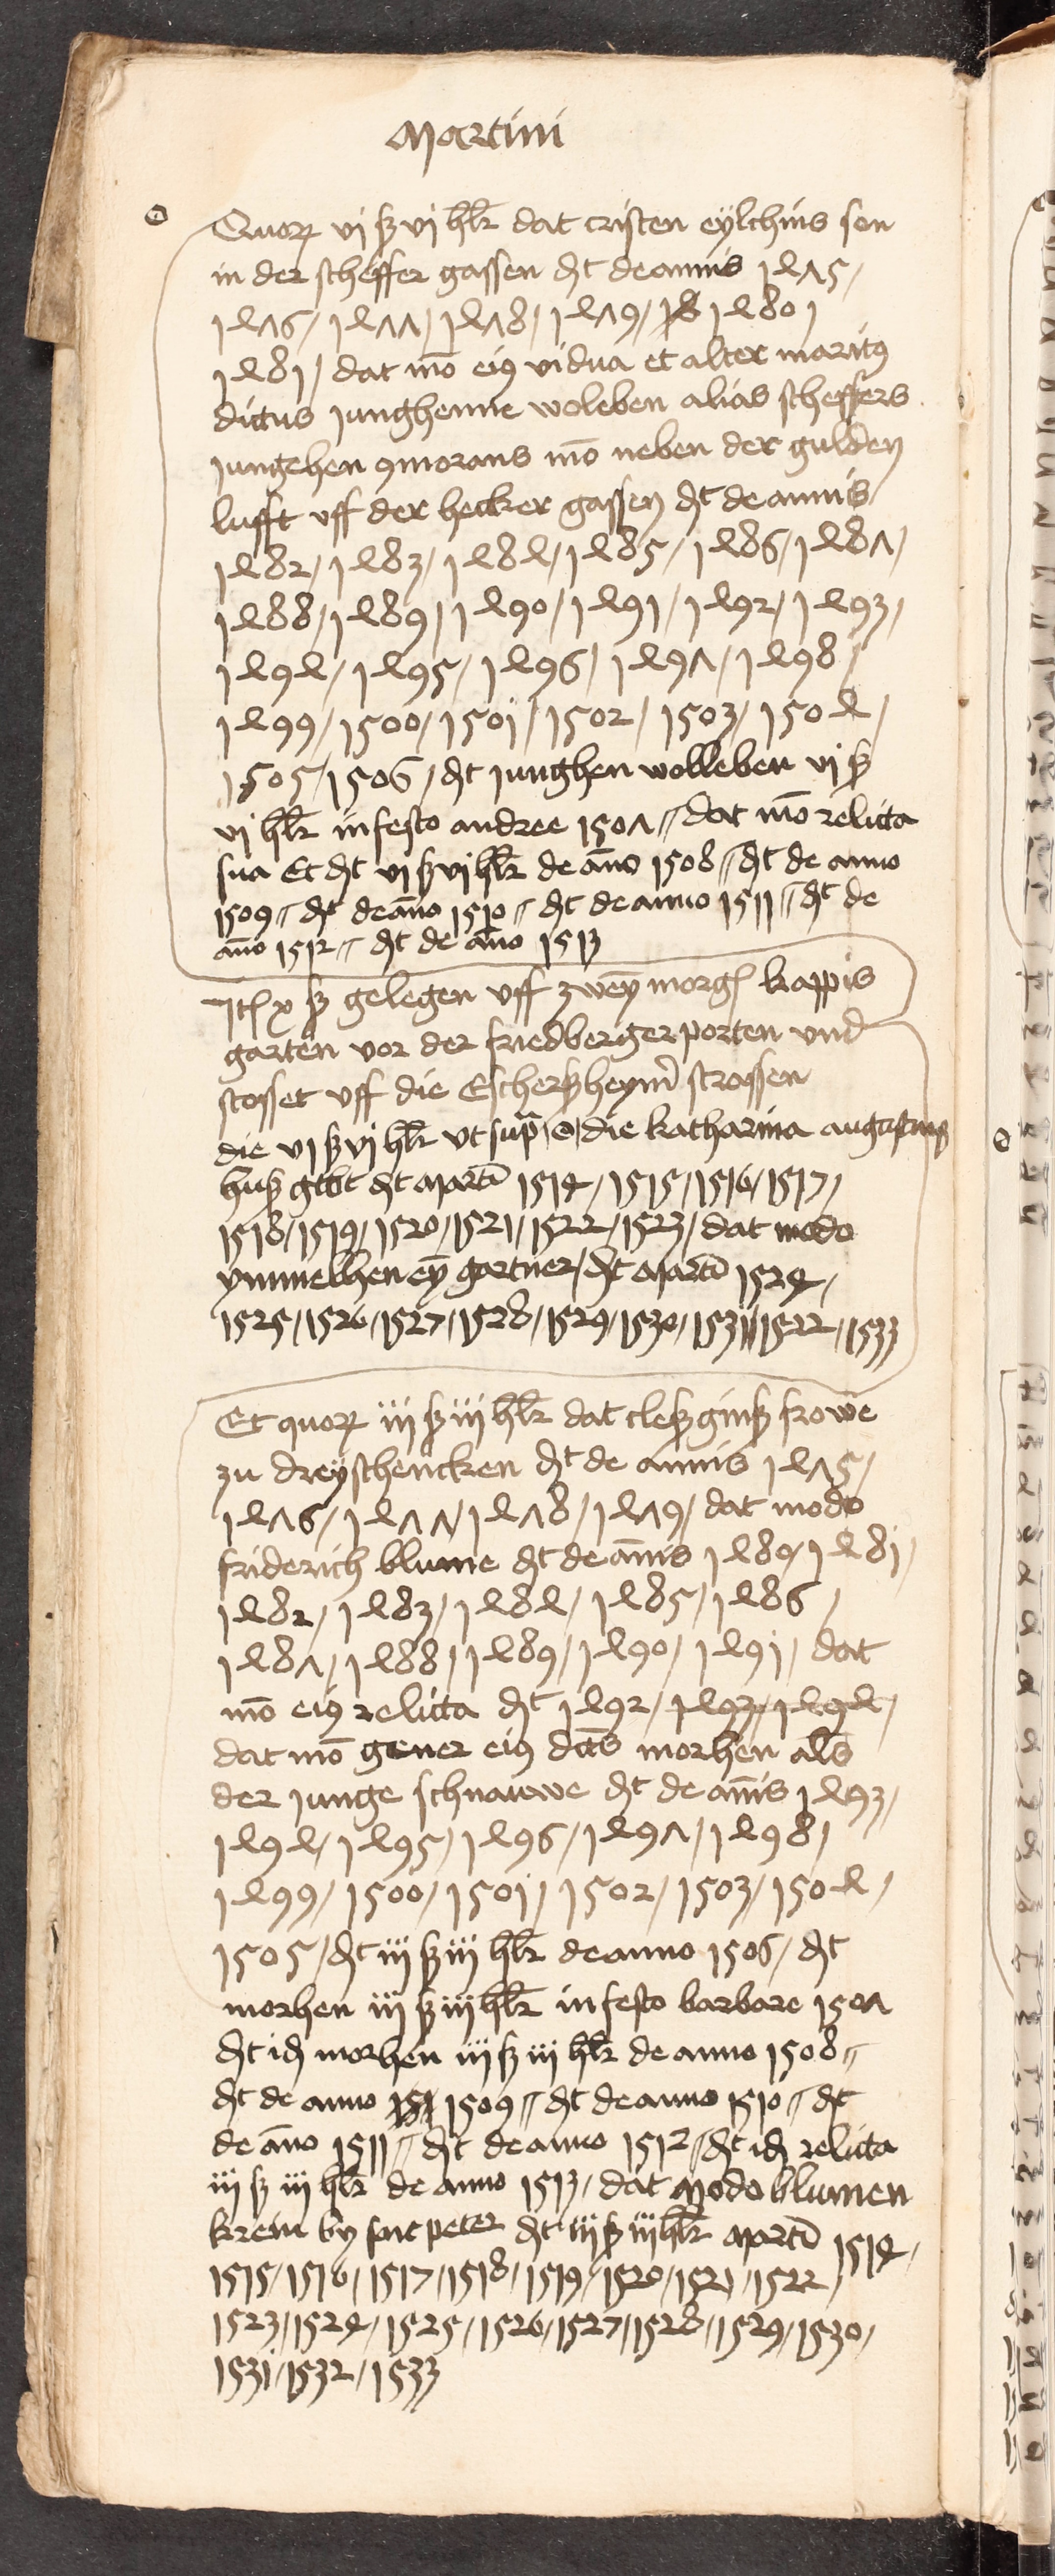 Martini
Quorum vj ß vj hlr dat cristen eylchins son
in der scheffer gassen dt de annis 1475/
1476/ 1477/ 1478/ 1479/ 1480/
1481/ dat mo eius vidua et alter maritus
dictus junghenne woleben alias scheffers
jungehen 9morans mo neben der gulden
lufft vff der becker gassen dt de annis
1482/ 1483/ 1484/ 1485/ 1486/ 1487/
1488/ 1489/ 1490/ 1491/ 1492/ 1493/
1494/ 1495/ 1496/ 1497/ 1498/
1499/ 1500/ 1501/ 1502/ 1503/ 1504/
1505/ 1506/ dt junghen wolleben vj ß
vj hlr in festo andree 1507// dat mo relicta
sua Et dt vj ß vj hlr de anno 1508// dt de anno
1509// dt de anno 1510// dt de anno 1511// dt de
anno 1512// dt de anno 1513
Itm x ß gelegen vff zweyn morgen kappis
garten vor der friedberger porten vnd
stosset vff die Escherßheymer strassen
die vj ß vj hlr vt supra die katharina
huß gibt dt Martini 1514/ 1515/ 1516/ 1517/
1518/ 1519/ 1520/ 1521/ 1522/ 1523/ dat modo
ymmelhen eyn gartner/ dt Martini 1524/
1525/ 1526/ 1527/ 1528/ 1529/ 1530/ 1531/ 1522/ 1533
Et quorum iij ß iij hlr dat cleßginß frowe
zu dreyschencken dt de annis 1475/
1476/ 1477/ 1478/ 1479/ dat modo
friderich blume dt de annis 1480/ 1481/
1482/ 1483/ 1484/ 1485/ 1486/
1487/ 1488/ 1489/ 1490/ 1491/ dat
mo eius relicta dt 1492/ 1493/ 1494/
dat mo gener eius dcts morhen als
der junge schnauwe dt de annis 1493/
1494/ 1495/ 1496/ 1497/ 1498/
1499/ 1500/ 1501/ 1502/ 1503/ 1504/
1505/ dt iij ß iij hlr de anno 1506/ dt
morhen iij ß iij hlr in festo barbare 1507
dt id morhen iij ß iij hlr de anno 1508//
dt de anno 1509// dt de anno 1510// dt
de anno 1511// dt de anno 1512// dt id relicta
iij ß iij hlr de anno 1513/ dat Modo blumen
krem by sant peter dt iij ß iij hlr Martini 1514/
1515/ 1516/ 1517/ 1518/ 1519/ 1520/ 1521/ 1522/
1523/ 1524/ 1525/ 1526/ 1527/ 1528/ 1529/ 1530/
1531/ 1532/ 1533